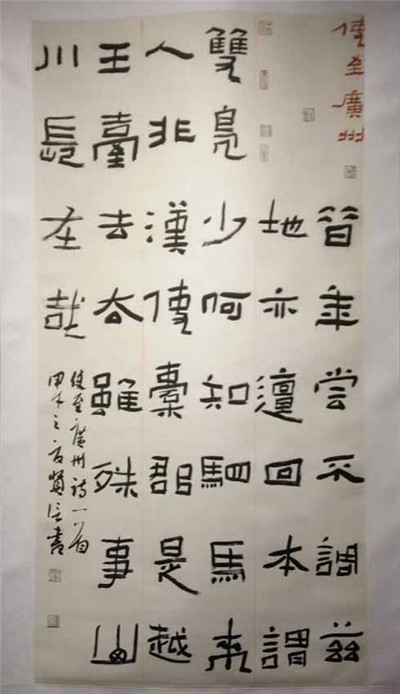 使至廣州
昔年嘗不調茲
地亦邅回本謂
雙鳧少何知駟馬來
人非漢使橐郡是越
王臺去厺雖殊事山
川長在哉
使至廣州詩一首
甲午之書